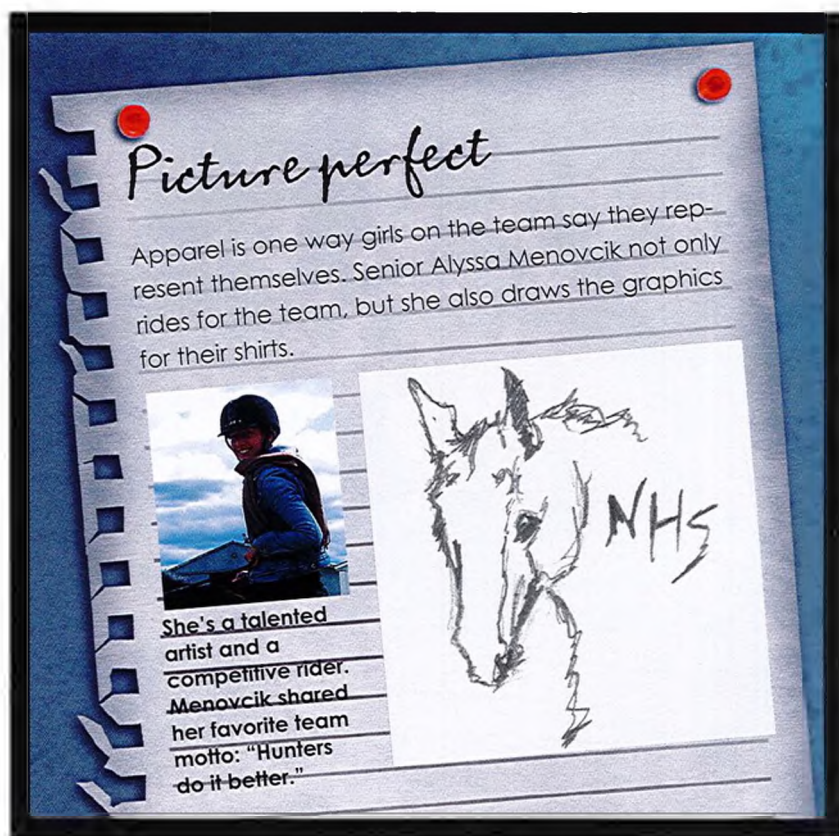 Picture perfect
Apparel is one way girls on the team say they rep-
resent themselves. Senior Alyssa Menovcik not only
rides for the team, but she also draws the graphics
for their shirts.
NHS
She's a talented
artist and a
competitive rider.
Menovcik shared
her favorite team
motto: "Hunters
do it better."